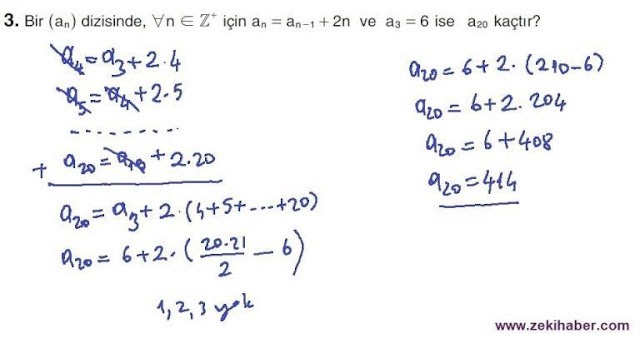 3. Bir (aₙ) dizisinde, ∀n ∈ Z⁺ için aₙ = aₙ₋₁ + 2n ve a₃ = 6 ise a₂₀ kaçtır?
a₄ = a₃ + 2.4
a₅ = a₄ + 2.5
- - - - - - - - -
+ a₂₀ = a₁₉ + 2.20
a₂₀ = a₃ + 2.(4+5+...+20)
a₂₀ = 6 + 2.(20.21/2 - 6)
1, 2, 3 yok
a₂₀ = 6 + 2.(210-6)
a₂₀ = 6 + 2.204
a₂₀ = 6 + 408
a₂₀ = 414
www.zekihaber.com